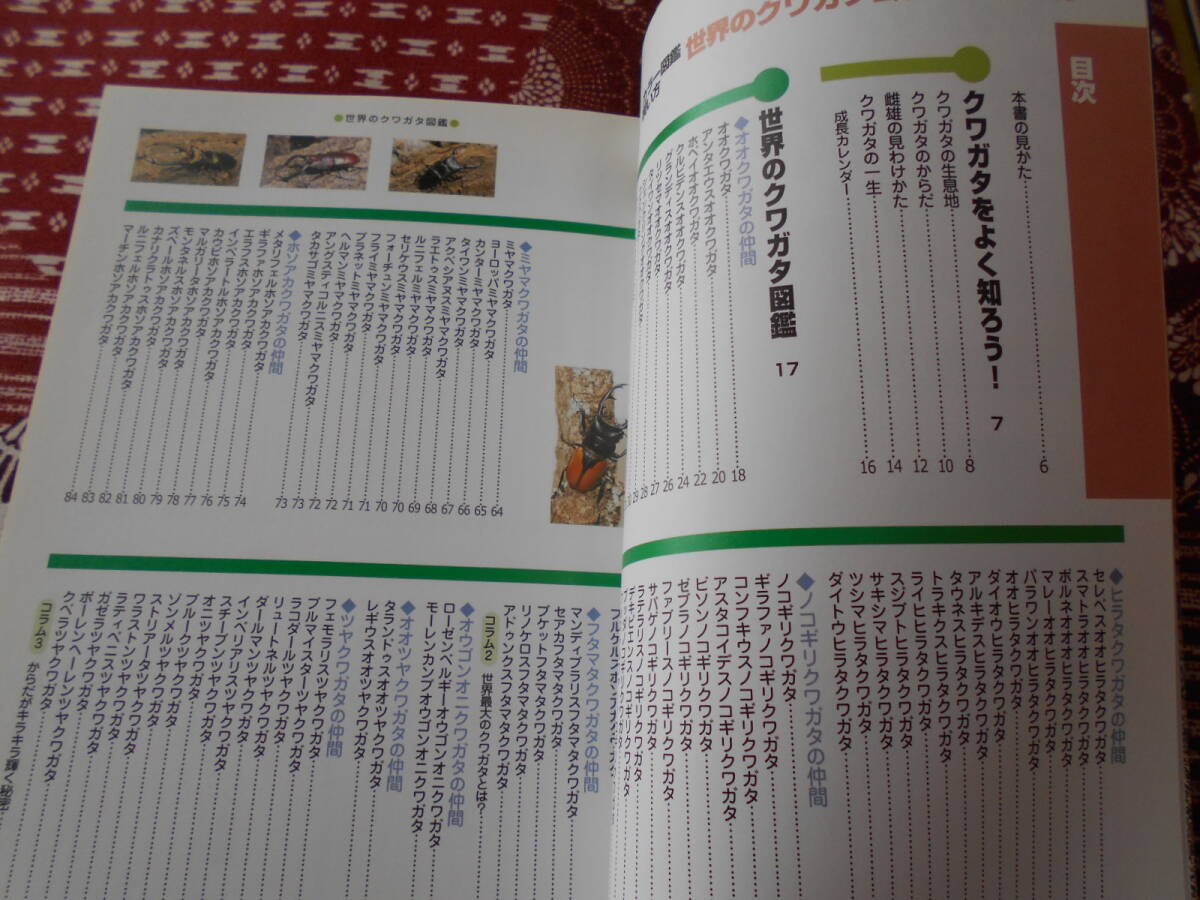 世界のクワガタ
カラー図鑑
目次
本書の見かた 6
クワガタをよく知ろう! 7
クワガタの生息地 8
クワガタのからだ 10
雌雄の見わけかた 12
クワガタの一生 14
成長カレンダー 16
世界のクワガタ図鑑 17
◆オオクワガタの仲間
オオクワガタ 18
アンタエウスオオクワガタ 20
ホペイオオクワガタ 22
クルビデンスオオクワガタ 24
グランディスオオクワガタ 26
リツセマオオクワガタ 27
◆ヒラタクワガタの仲間
セレベスオオヒラタクワガタ
スマトラオオヒラタクワガタ
ボルネオオオヒラタクワガタ
マレーオオヒラタクワガタ
パラワンオオヒラタクワガタ
オオヒラタクワガタ
ダイオウヒラタクワガタ
アルキデスヒラタクワガタ
タウネスヒラタクワガタ
トラキクスヒラタクワガタ
ライヒヒラタクワガタ
スジブトヒラタクワガタ
サキシマヒラタクワガタ
ツシマヒラタクワガタ
ダイトウヒラタクワガタ
◆ノコギリクワガタの仲間
ノコギリクワガタ
ギラファノコギリクワガタ
コンフキウスノコギリクワガタ
アスタコイデスノコギリクワガタ
ビソンノコギリクワガタ
ゼブラノコギリクワガタ
ファブリースノコギリクワガタ
サバゲノコギリクワガタ
ラテラリスノコギリクワガタ
●世界のクワガタ図鑑●
◆ミヤマクワガタの仲間
ミヤマクワガタ 64
ヨーロッパミヤマクワガタ 65
カンターミヤマクワガタ 66
タイワンミヤマクワガタ 66
アクベシアヌスミヤマクワガタ 67
ラエトゥスミヤマクワガタ 68
ルニフェルミヤマクワガタ 69
セリケウスミヤマクワガタ 70
フォーチュンミヤマクワガタ 70
フライミヤマクワガタ 71
プラネットミヤマクワガタ 71
ヘルマンミヤマクワガタ 72
アングスティコルニスミヤマクワガタ 72
タカサゴミヤマクワガタ 73
◆ホソアカクワガタの仲間 73
メタリフェルホソアカクワガタ
ギラファホソアカクワガタ 74
エラフスホソアカクワガタ 75
インペラートルホソアカクワガタ 76
カウピホソアカクワガタ 77
マルガリータホソアカクワガタ 77
モンタネルスホソアカクワガタ 78
ズベールホソアカクワガタ 79
カナリクラトゥスホソアカクワガタ 80
ルニフェルホソアカクワガタ 81
マーチンホソアカクワガタ 82
83
84
◆フタマタクワガタの仲間
マンディブラリスフタマタクワガタ
セアカフタマタクワガタ
ブケットフタマタクワガタ
リノケロスフタマタクワガタ
アドゥンクスフタマタクワガタ
コラム2 世界最大のクワガタとは?
◆オウゴンオニクワガタの仲間
ローゼンベルギーオウゴンオニクワガタ
モーレンカンプオウゴンオニクワガタ
◆オオツヤクワガタの仲間
タランドゥスオオツヤクワガタ
レギウスオオツヤクワガタ
◆ツヤクワガタの仲間
フェモラリスツヤクワガタ
ブルマイスターツヤクワガタ
ラコダールツヤクワガタ
リュートネルツヤクワガタ
ダールマンツヤクワガタ
インペリアリスツヤクワガタ
スチーブンツヤクワガタ
オニツヤクワガタ
ブルークツヤクワガタ
ゾンメルツヤクワガタ
ストリアータツヤクワガタ
ワラストンツヤクワガタ
ラティペニスツヤクワガタ
ガゼラツヤクワガタ
ボーレンヘーレンツヤクワガタ
クベラツヤクワガタ
コラム3 からだがキラキラ輝く秘密